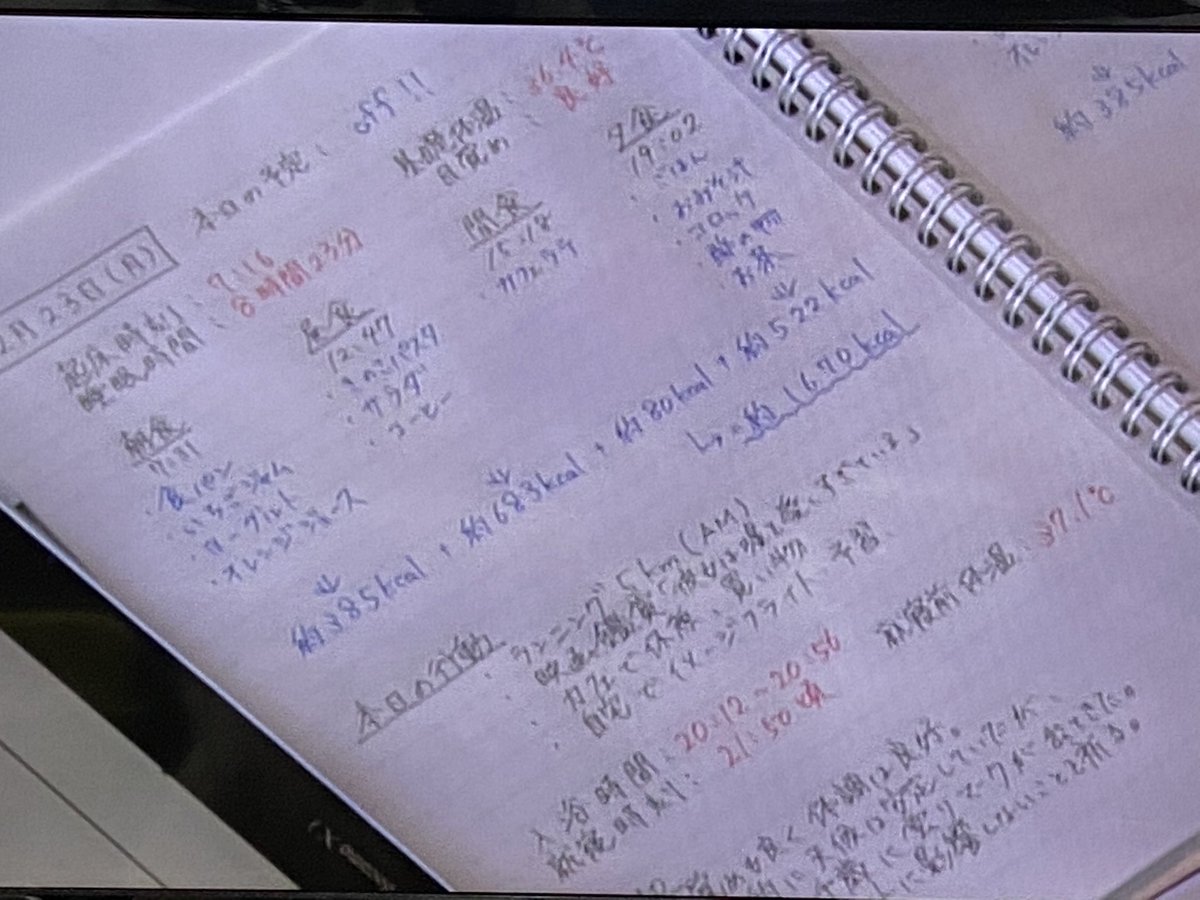 2月23日(月)
本日の予定: off!!
起床時刻: 7:16
睡眠時間: 8時間23分
基礎体温: 36.4℃
目覚め: 良好
朝食
・食パン
・いちごジャム
・ヨーグルト
・オレンジジュース
↓
約385kcal
昼食
12:47
・きのこパスタ
・サラダ
・コーヒー
↓
+ 約683kcal
間食
15:18
・カフェラテ
+ 約80kcal
夕食
19:02
・ごはん
・おみそ汁
・コロッケ
・酢の物
・お茶
↓
+ 約522kcal
↳ 約1670kcal
本日の行動
・ランニング 5km(AM)
・映画鑑賞
・カフェで休憩、買い物
・自宅でイメージフライト、予習
入浴時間: 20:12〜20:56
就寝時刻: 21:50
就寝前体温: 37.1℃
目覚めも良く体調は良好。
に天候は安定していたが、
に曇りマークが出てきた。
に影響しないことを祈る。
オレンジ
↓
約385kcal